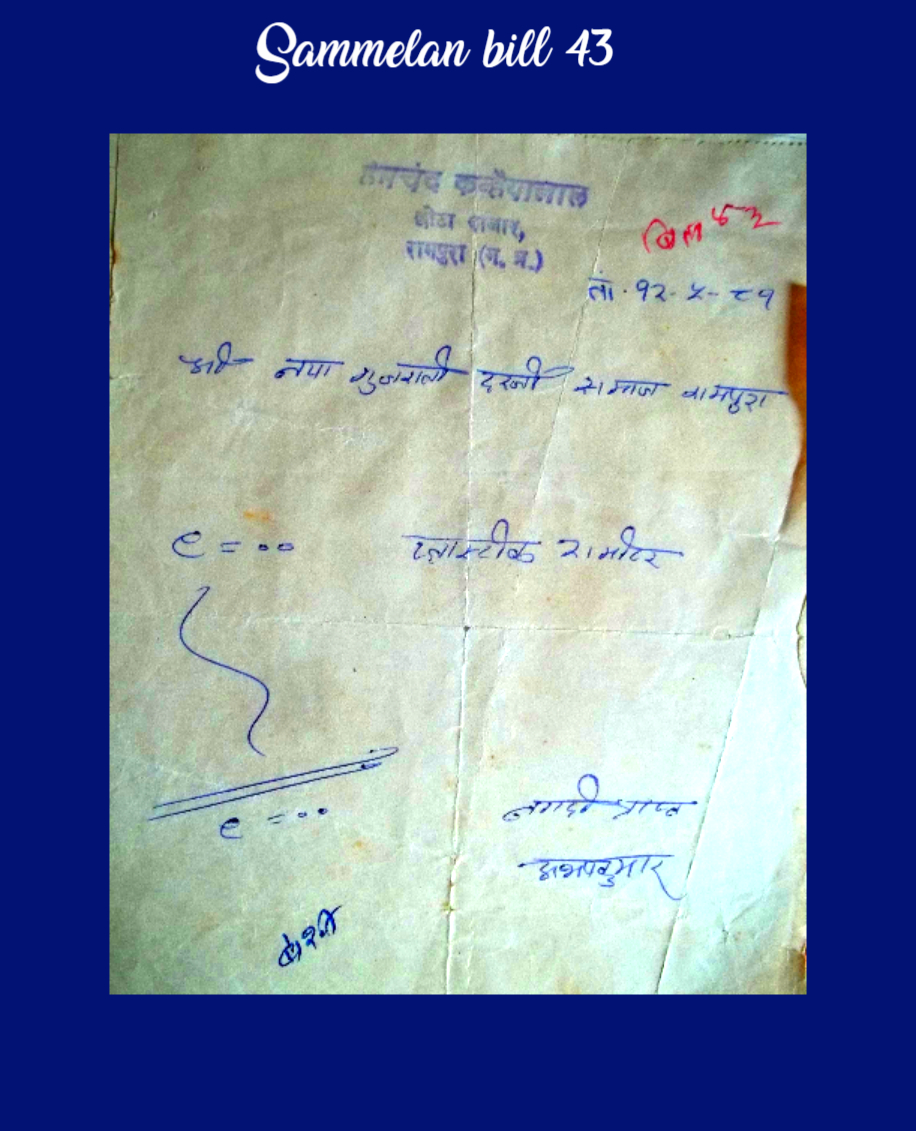 Sammelan bill 43
कन्हैयालाल
छोटा बाजार,
रामपुरा (म. प्र.)
बिल ४३
ता. १२-५-८१
श्री नया गुजराती दरजी समाज रामपुरा
९=०० प्लास्टीक २। मीटर
९=००
नगदी प्राप्त
अभयकुमार